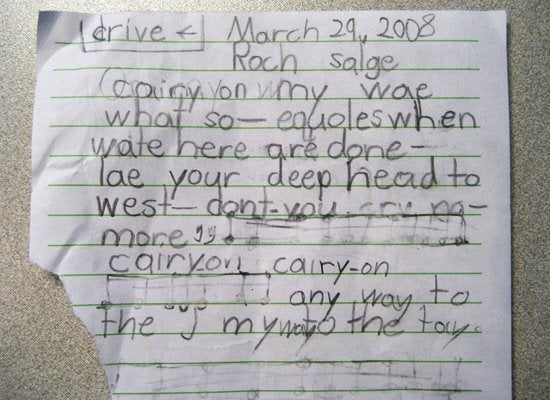 drive ← March 29, 2008
Rach salge
cairy on my wae
what so— equoles when
wate here are done—
lae your deep head to
west— dont you cry no—
more
cairyon cairy-on
any way to
the J my wayto the tay.